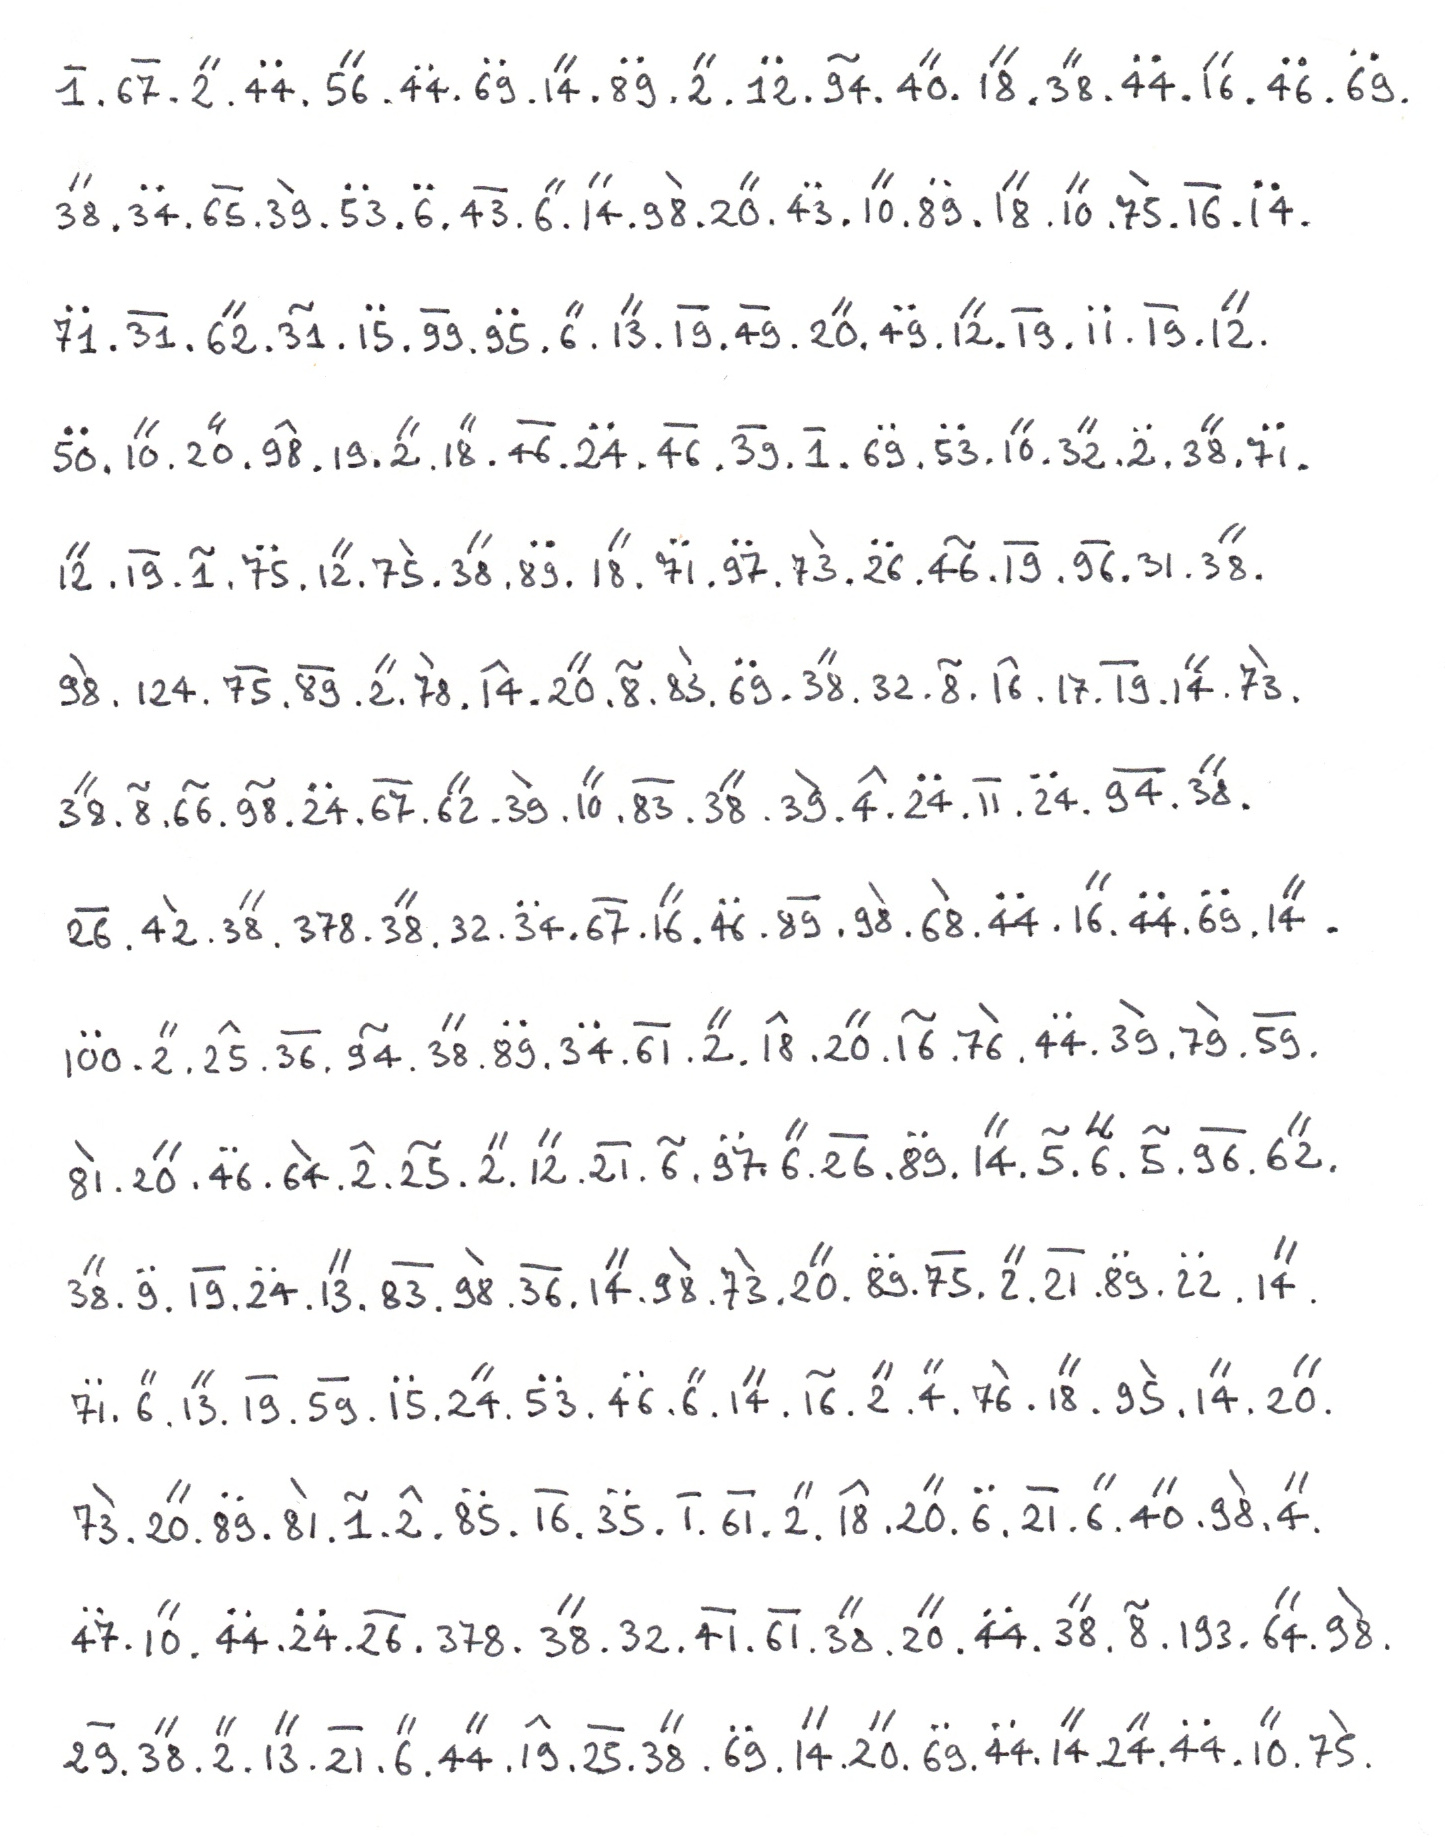 1̄. 67̄. 2̋. 44̈. 56̋. 44̈. 69̈. 14̋. 89̈. 2̋. 12̈. 94̃. 40̋. 18̋. 38̋. 44̈. 16̋. 46̈. 69̈.
38̋. 34̈. 65̄. 39̀. 53̈. 6̈. 43̄. 6̋. 14̋. 98̀. 20̋. 43̈. 10̋. 89̈. 18̋. 10̋. 75̀. 16̄. 14̈.
71̈. 31̄. 62̋. 31̃. 15̈. 99̄. 95̈. 6̋. 13̋. 19̄. 49̄. 20̋. 49̈. 12̋. 19̄. 11̈. 19̄. 12̋.
50̈. 10̋. 20̋. 98̂. 19. 2̋. 18̋. 46̄. 24̈. 46̄. 39̄. 1̄. 69̈. 53̈. 10̋. 32̋. 2̈. 38̋. 71̈.
12̋. 19̄. 1̃. 75̈. 12̋. 75̀. 38̋. 89̈. 18̋. 71̈. 97̈. 73̀. 26̈. 46̃. 19̄. 96̄. 31. 38̋.
98̀. 124. 75̄. 89̄. 2̋. 78̀. 14̂. 20̋. 8̃. 83̀. 69̈. 38̋. 32. 8̃. 16̂. 17. 19̄. 14̋. 73̀.
38̋. 8̃. 66̃. 98̃. 24̈. 67̄. 62̋. 39̀. 10̋. 83̄. 38̋. 39̀. 4̂. 24̈. 11̄. 24̈. 94̄. 38̋.
26̄. 42̀. 38̋. 378. 38̋. 32. 34̈. 67̄. 16̋. 46̈. 89̄. 98̀. 68̀. 44̈. 16̋. 44̈. 69̈. 14̋.
100̈. 2̋. 25̂. 36̄. 94̃. 38̋. 89̈. 34̈. 61̄. 2̋. 18̂. 20̋. 16̃. 76̀. 44̈. 39̀. 79̀. 59̄.
81̀. 20̋. 46̈. 64̀. 2̂. 25̃. 2̋. 12̋. 21̄. 6̃. 97̈. 6̋. 26̄. 89̈. 14̋. 5̃. 6̋. 5̃. 96̄. 62̋.
38̋. 9̈. 19̄. 24̈. 13̋. 83̄. 98̀. 36̄. 14̋. 98̀. 73̀. 20̋. 89̈. 75̄. 2̋. 21̄. 89̈. 22̈. 14̋.
71̈. 6̋. 13̋. 19̄. 59̄. 15̈. 24̋. 53̈. 46̈. 6̋. 14̋. 16̃. 2̋. 4̋. 76̀. 18̋. 95̀. 14̋. 20̋.
73̀. 20̋. 89̈. 81̀. 1̃. 2̂. 85̈. 16̄. 35̈. 1̄. 61̄. 2̋. 18̂. 20̋. 6̈. 21̄. 6̋. 40̋. 98̀. 4̋.
47̈. 10̋. 44̈. 24̈. 26̄. 378. 38̋. 32. 41̄. 61̄. 38̋. 20̋. 44̈. 38̋. 8̃. 193. 64̋. 98̀.
29̄. 38̋. 2̋. 13̋. 21̄. 6̋. 44̋. 19̂. 25̄. 38̋. 69̈. 14̋. 20̋. 69̈. 44̈. 14̋. 24̋. 44̈. 10̋. 75̀.